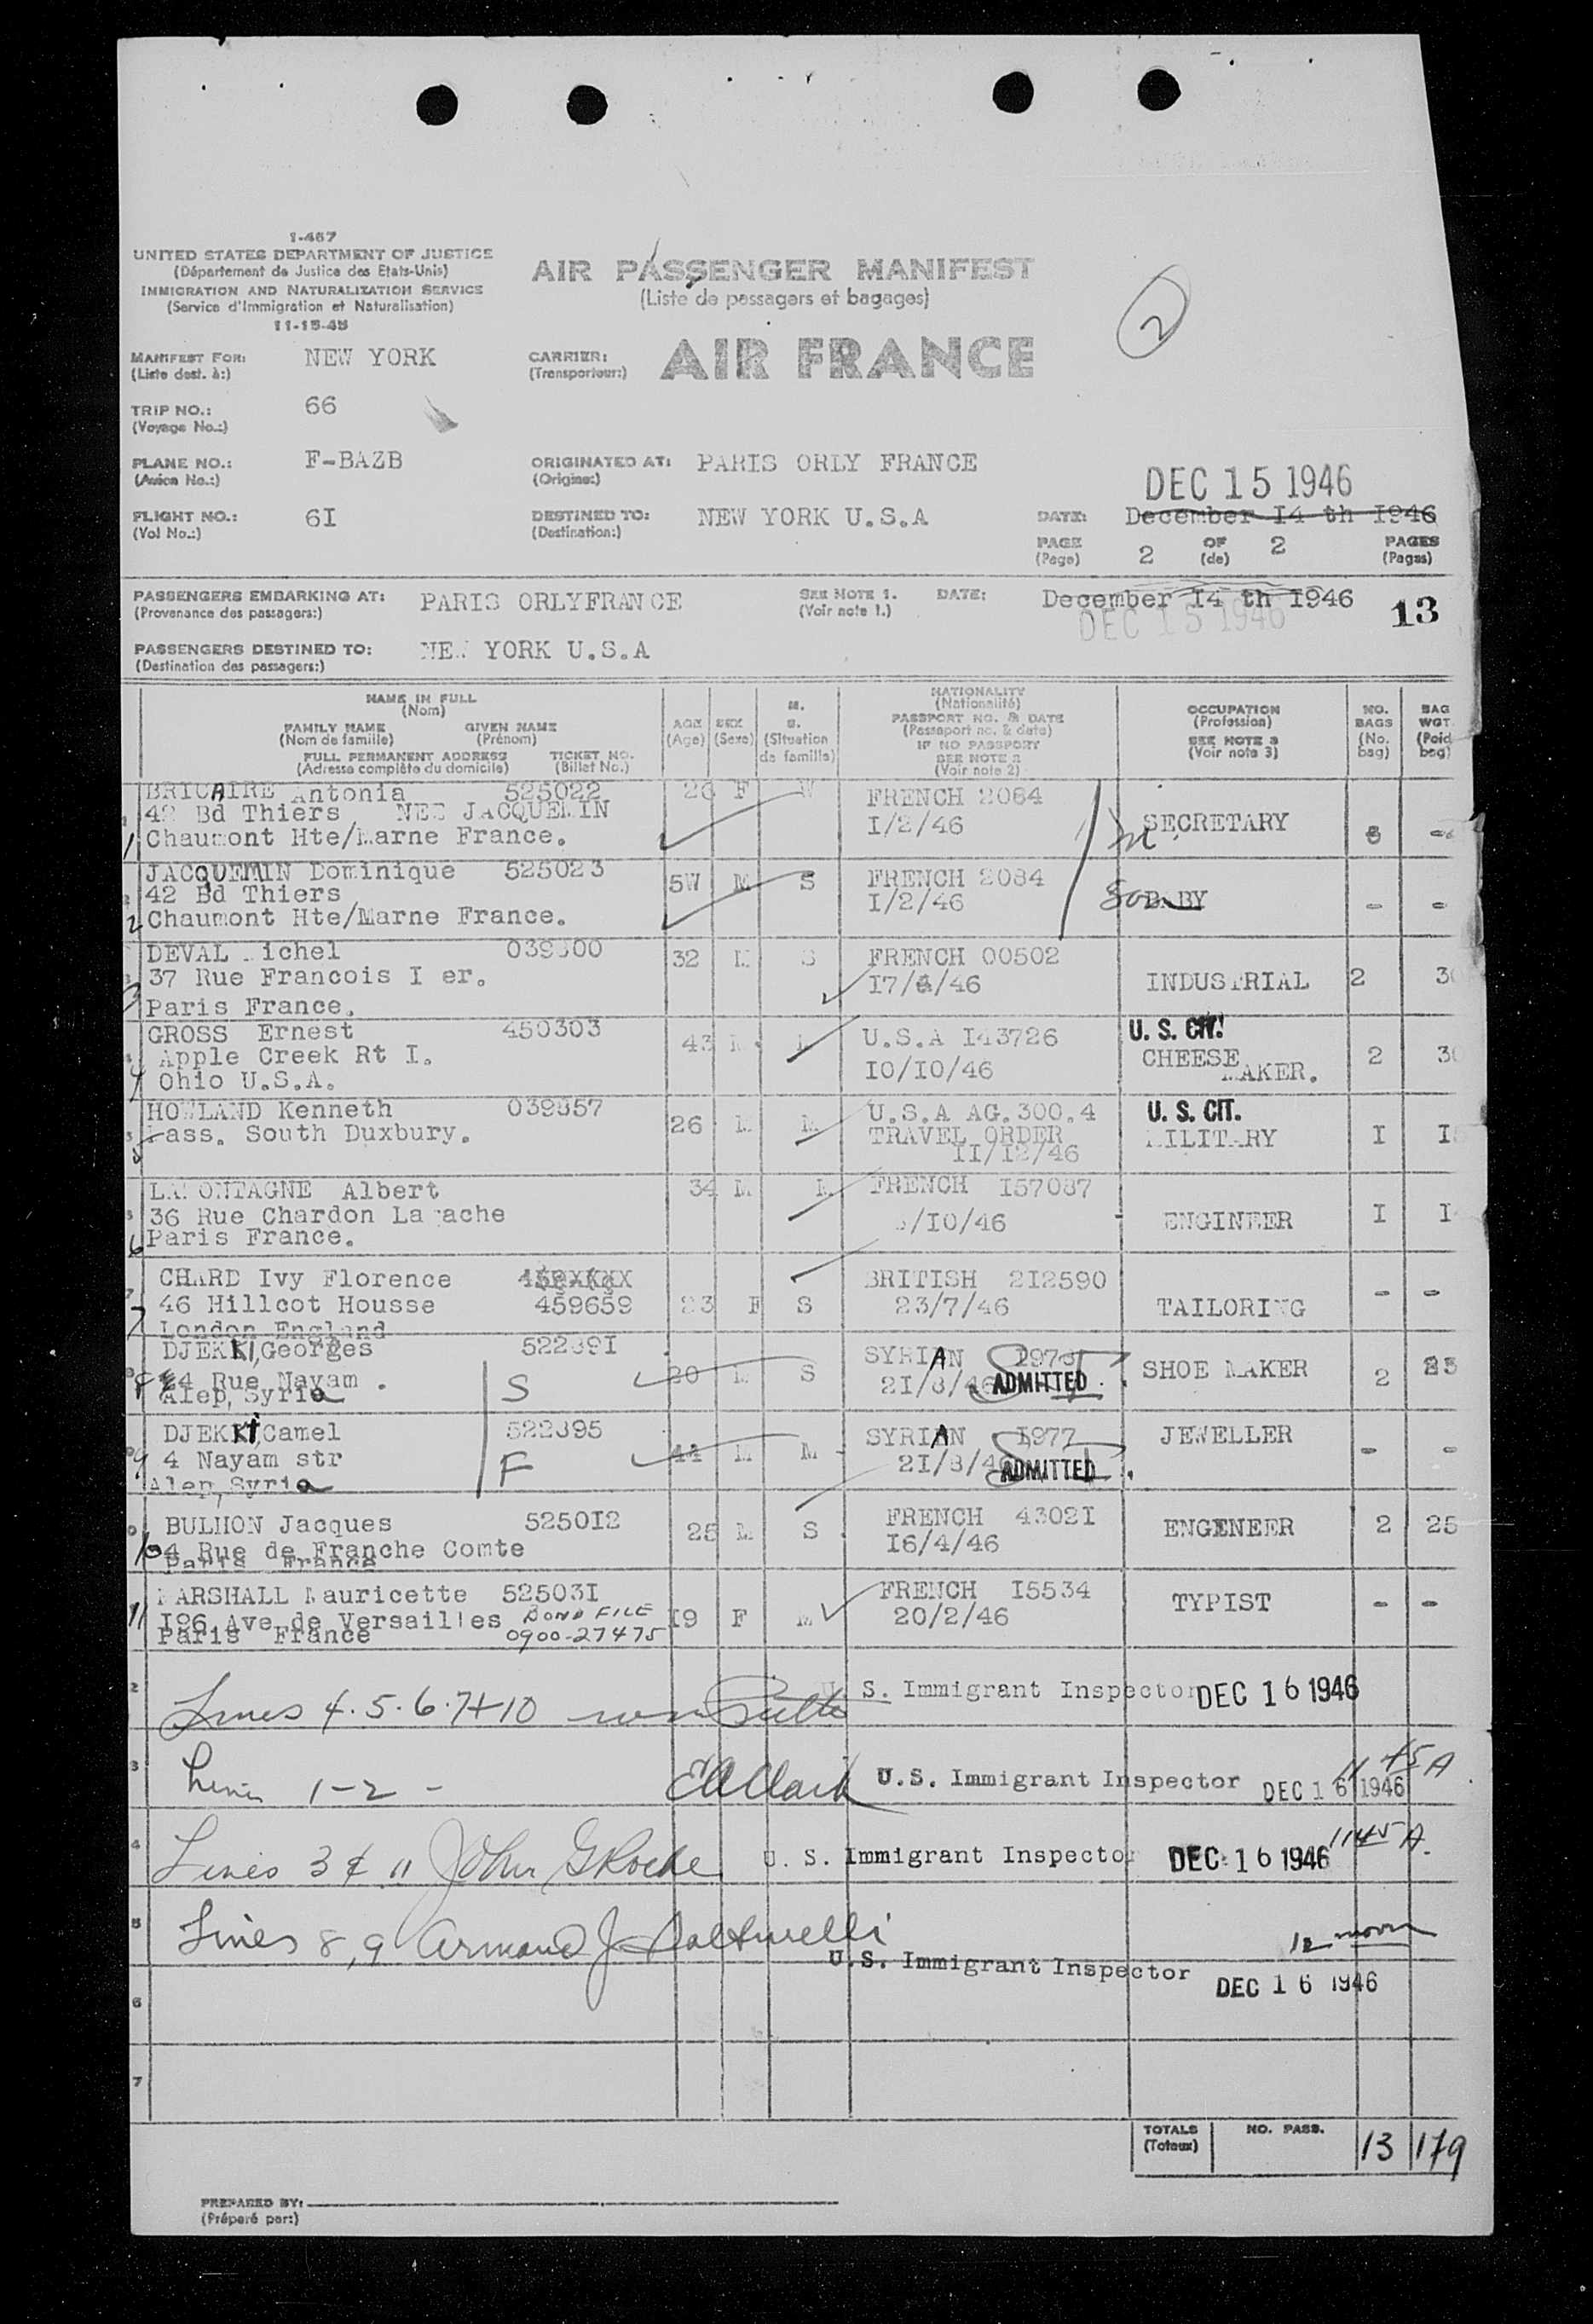 1-467
UNITED STATES DEPARTMENT OF JUSTICE
(Département de Justice des Etats-Unis)
IMMIGRATION AND NATURALIZATION SERVICE
(Service d'Immigration et Naturalisation)
11-15-45
AIR PASSENGER MANIFEST
(Liste de passagers et bagages)
2
MANIFEST FOR: NEW YORK
(Liste dest. à:)
CARRIER: AIR FRANCE
(Transporteur:)
TRIP NO.: 66
(Voyage No.:)
PLANE NO.: F-BAZB
(Avion No.:)
ORIGINATED AT: PARIS ORLY FRANCE
(Origine:)
DEC 15 1946
FLIGHT NO.: 6I
(Vol No.:)
DESTINED TO: NEW YORK U.S.A
(Destination:)
DATE: December I4 th I946
PAGE 2 OF 2 PAGES
(Page) (de) (Pages)
PASSENGERS EMBARKING AT: PARIS ORLYFRANCE
(Provenance des passagers:)
SEE NOTE 1. DATE: December I4 th I946
(Voir note 1.) DEC 15 1946
13
PASSENGERS DESTINED TO: NEW YORK U.S.A
(Destination des passagers:)
NAME IN FULL
(Nom)
FAMILY NAME GIVEN NAME
(Nom de famille) (Prénom)
FULL PERMANENT ADDRESS TICKET NO.
(Adresse complète du domicile) (Billet No.)
AGE
(Age)
SEX
(Sexe)
M.
S.
(Situation
de famille)
NATIONALITY
(Nationalité)
PASSPORT NO. & DATE
(Passeport no. & date)
IF NO PASSPORT
SEE NOTE 2
(Voir note 2)
OCCUPATION
(Profession)
SEE NOTE 3
(Voir note 3)
NO.
BAGS
(No.
bag)
BAG
WGT.
(Poid
bag)
BRICAIRE Antonia 525022 26 F W FRENCH 2084
42 Bd Thiers NEE JACQUEMIN I/2/46 SECRETARY
1 Chaumont Hte/Marne France.
JACQUEMIN Dominique 525023 5W M S FRENCH 2084
42 Bd Thiers I/2/46 Son BABY - -
2 Chaumont Hte/Marne France.
DEVAL Michel 32 M S FRENCH 00502
37 Rue Francois I er. I7/ /46 INDUSTRIAL 2
3 Paris France.
GROSS Ernest 450303 43 M M U.S.A I43726 U. S. CIT.
Apple Creek Rt I. I0/I0/46 CHEESE MAKER. 2
4 Ohio U.S.A.
HOWLAND Kenneth 039857 26 M M U.S.A AG.300.4 U. S. CIT.
5 Mass. South Duxbury. TRAVEL ORDER MILITARY I
II/I2/46
LAMONTAGNE Albert 34 M M FRENCH I57087
36 Rue Chardon Lagache /I0/46 ENGINEER I
6 Paris France.
CHARD Ivy Florence BRITISH 2I2590
7 46 Hillcot Housse 459659 23 F S 23/7/46 TAILORING - -
London England
DJEKKI, Georges 20 M S SYRIAN ADMITTED SHOE MAKER 2
8 Rue Nayam. S 2I/8/46
Alep, Syria
DJEKKI, Camel 44 M M SYRIAN I977 JEWELLER - -
9 4 Nayam str F 2I/8/46 ADMITTED
Alep, Syria
BULHON Jacques 5250I2 25 M S FRENCH 4302I
10 4 Rue de Franche Comte I6/4/46 ENGENEER 2 25
Paris France
MARSHALL Mauricette 52503I I9 F M FRENCH I5534
11 I86 Ave de Versailles BOND FILE 20/2/46 TYPIST - -
Paris France 0900-27475
Lines 4.5.6.7+10 U. S. Immigrant Inspector DEC 16 1946
Lines 1-2 - EAClark U.S. Immigrant Inspector DEC 16 1946 11 45 A
Lines 3 & 11 John G Roche U. S. Immigrant Inspector DEC 16 1946 1145 A.
Lines 8,9 Armand J 12 noon
U.S. Immigrant Inspector DEC 16 1946
TOTALS NO. PASS. 13 179
(Totaux)
PREPARED BY:
(Préparé par:)